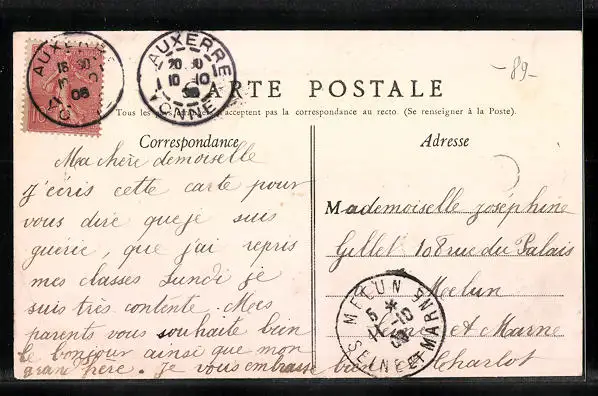 -89-
AUXERRE
AUXERRE
20 30
10 10
YONNE
CARTE POSTALE
Tous les pays étrangers n'acceptent pas la correspondance au recto. (Se renseigner à la Poste).
Correspondance
Adresse
Ma chère demoiselle
J'écris cette carte pour
vous dire que je suis
guérie, que j'ai repris
mes classes Lundi je
suis très contente. Mes
parents vous souhaite bien
le bonjour ainsi que mon
grand père. Je vous embrasse bien Charlot
Mademoiselle Joséphine
Gillet 108 rue du Palais
Melun
Seine et Marne
MELUN
5 *
11-10
SEINE ET MARNE